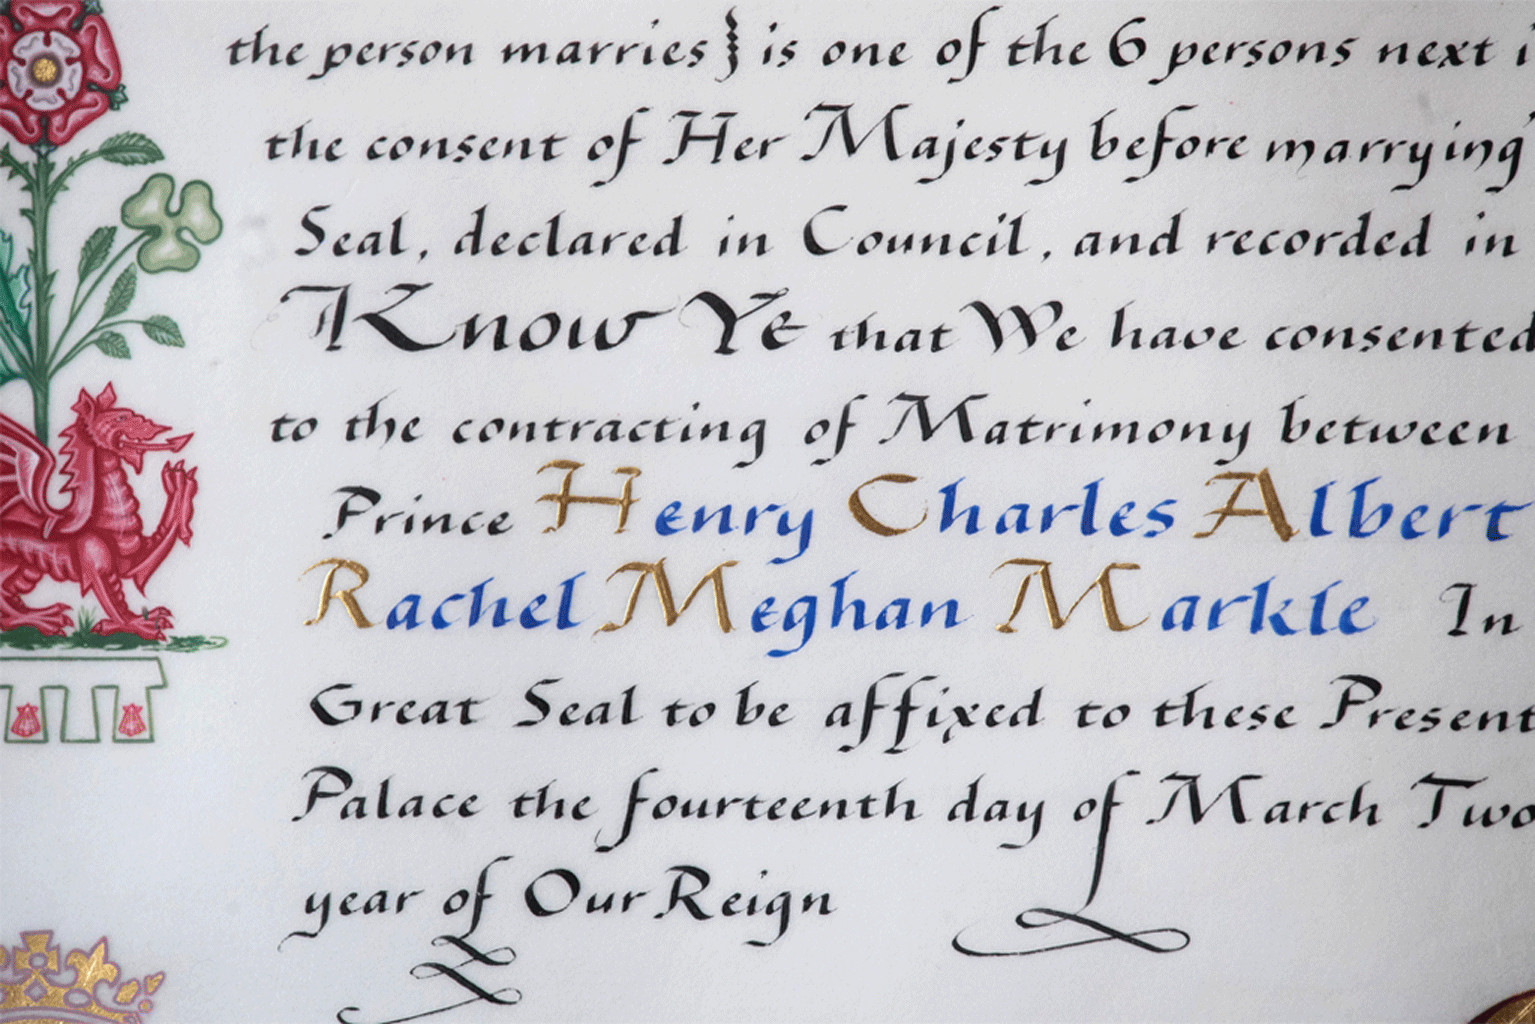 the person marries } is one of the 6 persons next i
the consent of Her Majesty before marrying
Seal, declared in Council, and recorded in
Know Ye that We have consented
to the contracting of Matrimony between
Prince Henry Charles Albert
Rachel Meghan Markle In
Great Seal to be affixed to these Present
Palace the fourteenth day of March Two
year of Our Reign